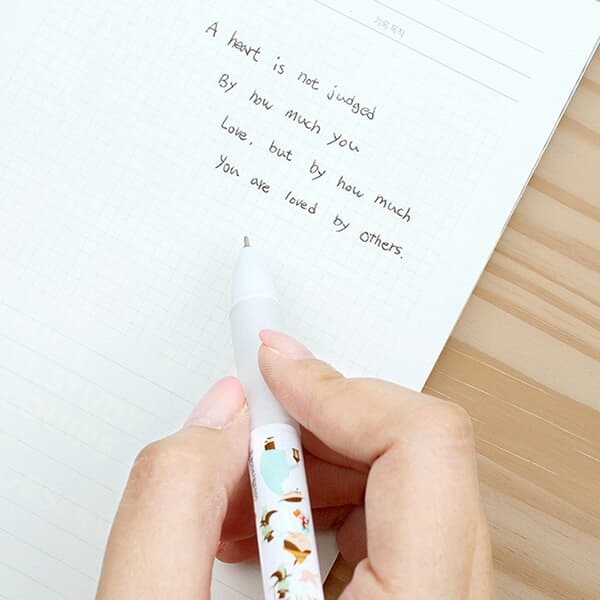 기록 목적
A heart is not judged
By how much you
Love, but by how much
You are loved by others.